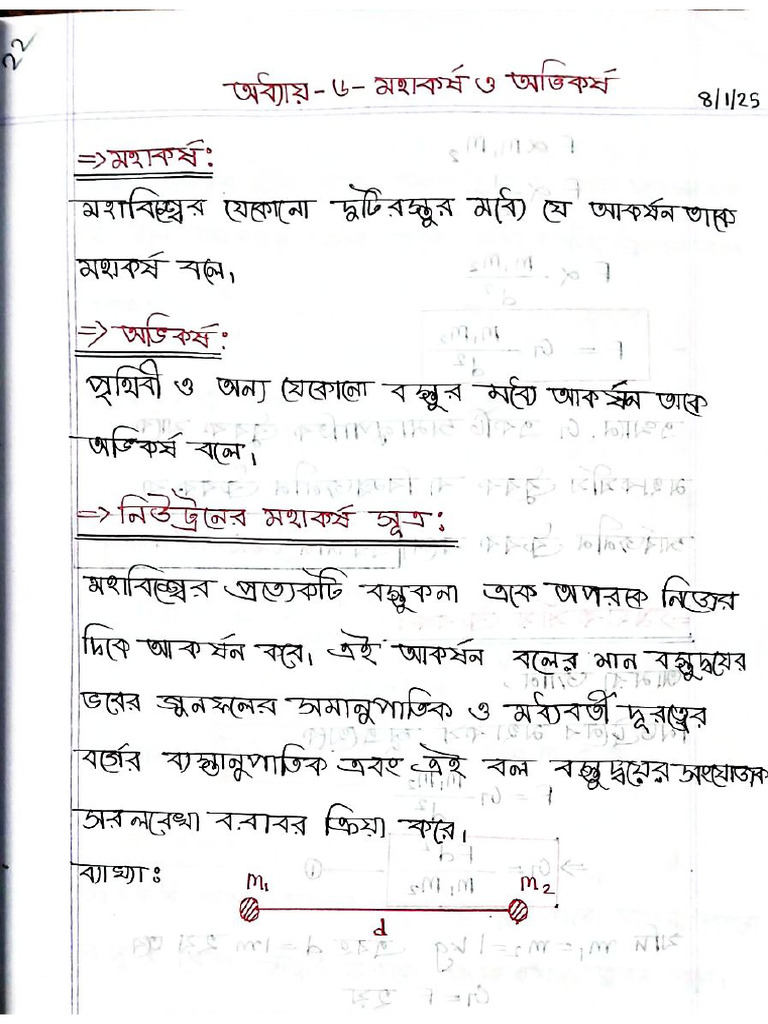 22
অধ্যায় - ৬ - মহাকর্ষ ও অভিকর্ষ
8/1/25
=> মহাকর্ষ:
মহাবিশ্বের যেকোনো দুটি বস্তুর মধ্যে যে আকর্ষন তাকে
মহাকর্ষ বলে।
=> অভিকর্ষ:
পৃথিবী ও অন্য যেকোনো বস্তুর মধ্যে আকর্ষন তাকে
অভিকর্ষ বলে।
=> নিউট্রনের মহাকর্ষ সূত্র:
মহাবিশ্বের প্রত্যেকটি বস্তুকনা একে অপরকে নিজের
দিকে আকর্ষন করে। এই আকর্ষন বলের মান বস্তুদ্বয়ের
ভরের গুনফলের সমানুপাতিক ও মধ্যবর্তী দূরত্বের
বর্গের ব্যস্তানুপাতিক এবং এই বল বস্তুদ্বয়ের সংযোজক
সরলরেখা বরাবর ক্রিয়া করে।
ব্যাখ্যা:
m₁ m₂
d